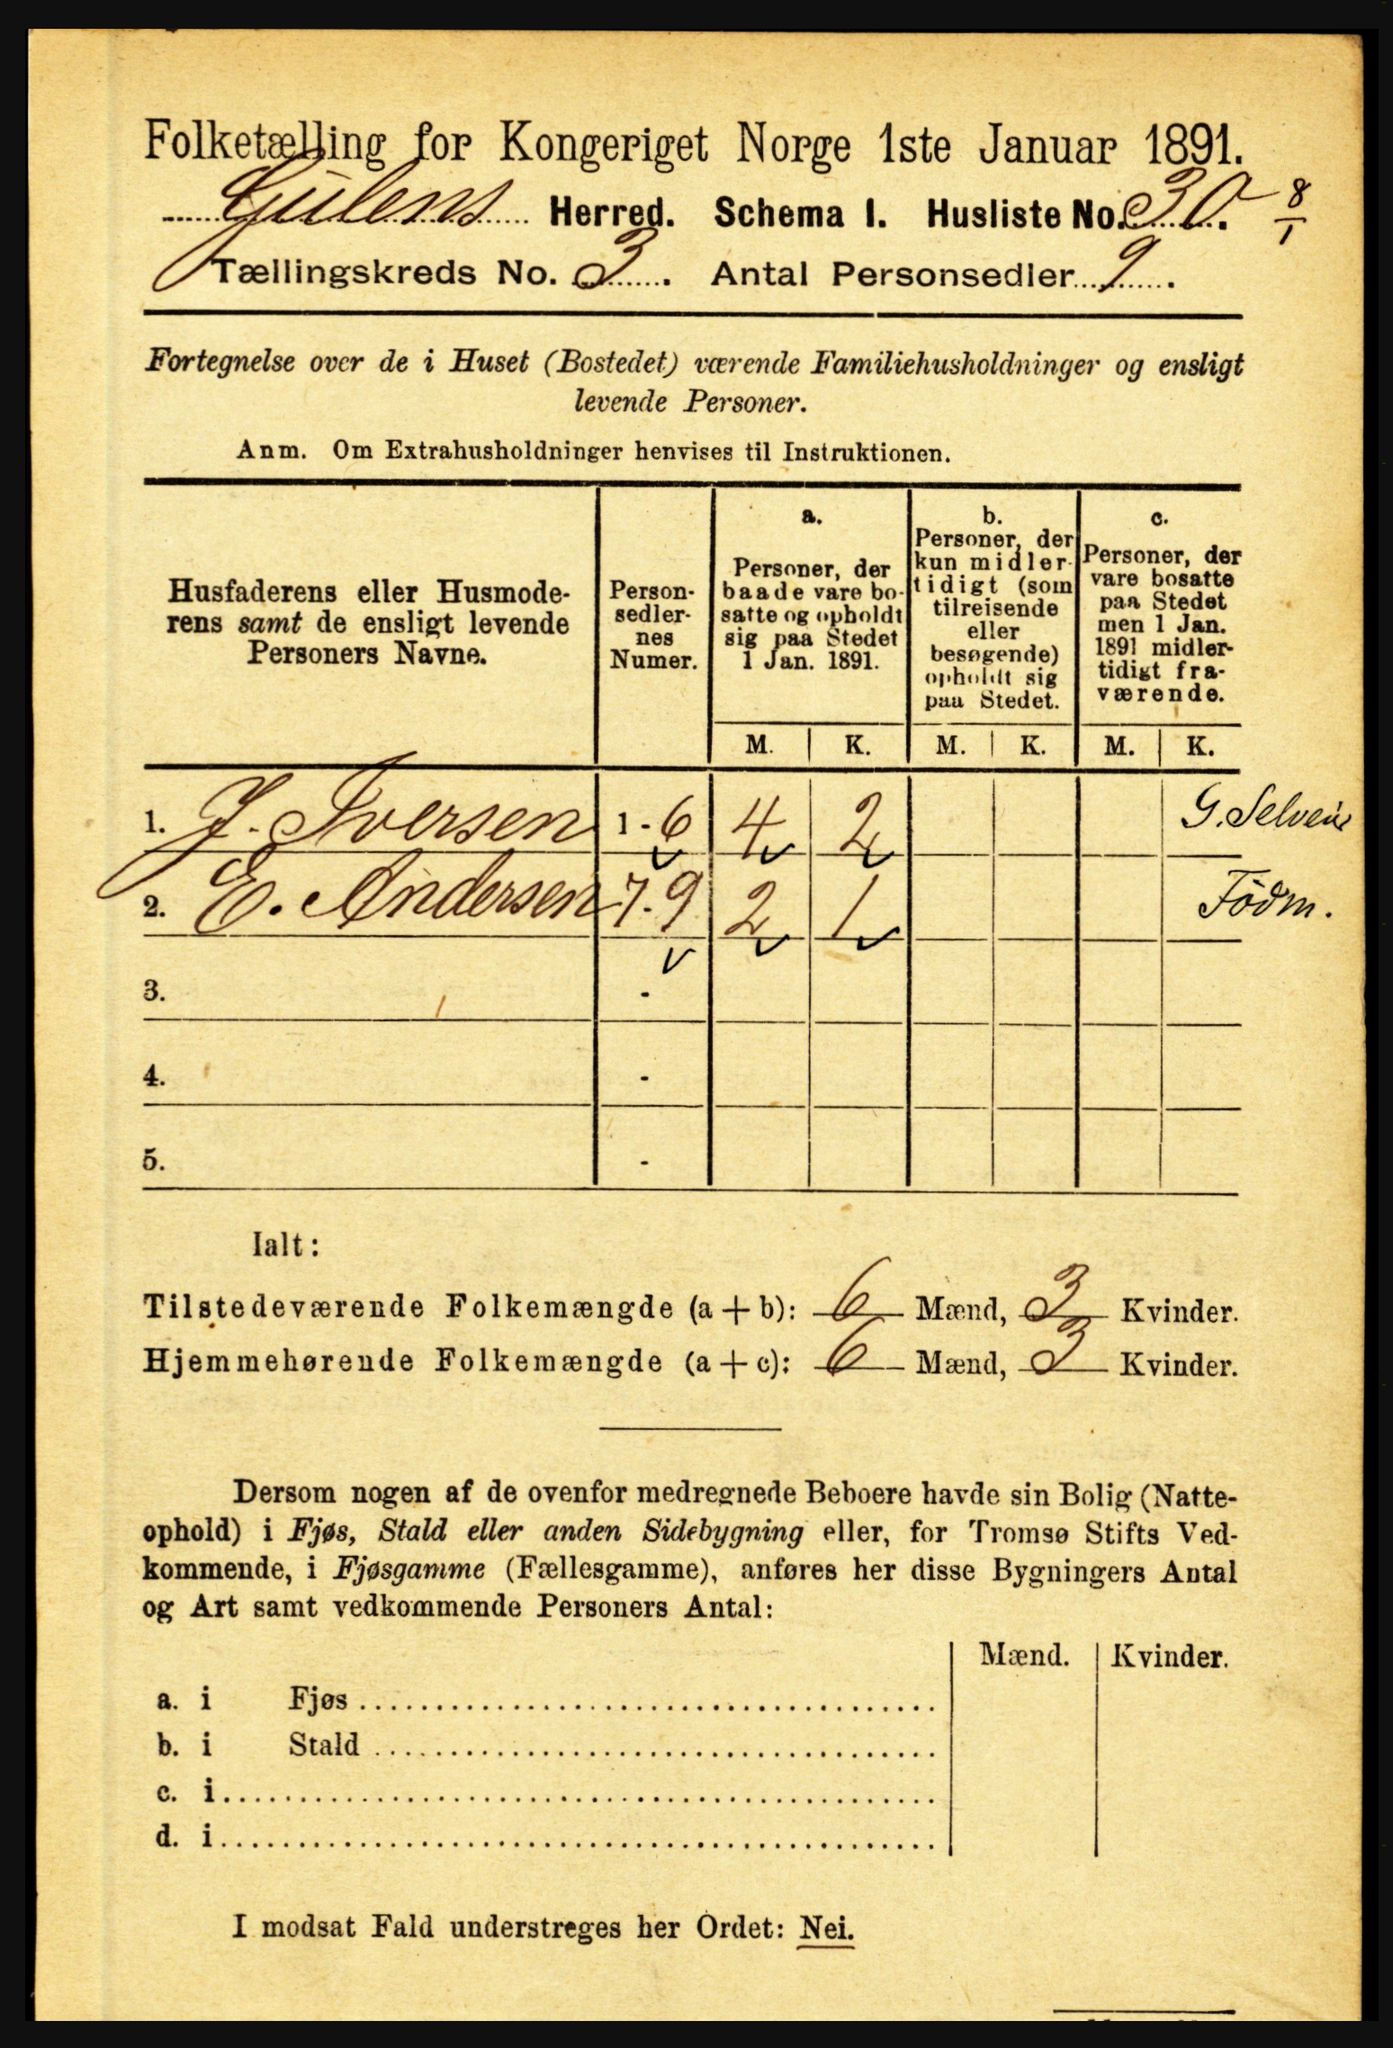 Folketælling for Kongeriget Norge 1ste Januar 1891.
Gulens Herred. Schema I. Husliste No. 30. 8/1
Tællingskreds No. 3. Antal Personsedler 9.
Fortegnelse over de i Huset (Bostedet) værende Familiehusholdninger og ensligt
levende Personer.
Anm. Om Extrahusholdninger henvises til Instruktionen.
Husfaderens eller Husmode-
rens samt de ensligt levende
Personers Navne.
Person-
sedler-
nes
Numer.
a.
Personer, der
baade vare bo-
satte og opholdt
sig paa Stedet
1 Jan. 1891.
b.
Personer, der
kun midler-
tidigt (som
tilreisende
eller
besøgende)
opholdt sig
paa Stedet.
c.
Personer, der
vare bosatte
paa Stedet
men 1 Jan.
1891 midler-
tidigt fra-
værende.
M. K. M. K. M. K.
1. J. Iversen 1 - 6 4 2 G. Selveie
2. E. Andersen 7 - 9 2 1 Födm.
3. -
4. -
5. -
Ialt:
Tilstedeværende Folkemængde (a + b): 6 Mænd, 3 Kvinder.
Hjemmehørende Folkemængde (a + c): 6 Mænd, 3 Kvinder.
Dersom nogen af de ovenfor medregnede Beboere havde sin Bolig (Natte-
ophold) i Fjøs, Stald eller anden Sidebygning eller, for Tromsø Stifts Ved-
kommende, i Fjøsgamme (Fællesgamme), anføres her disse Bygningers Antal
og Art samt vedkommende Personers Antal:
Mænd. Kvinder.
a. i Fjøs
b. i Stald
c. i
d. i
I modsat Fald understreges her Ordet: Nei.